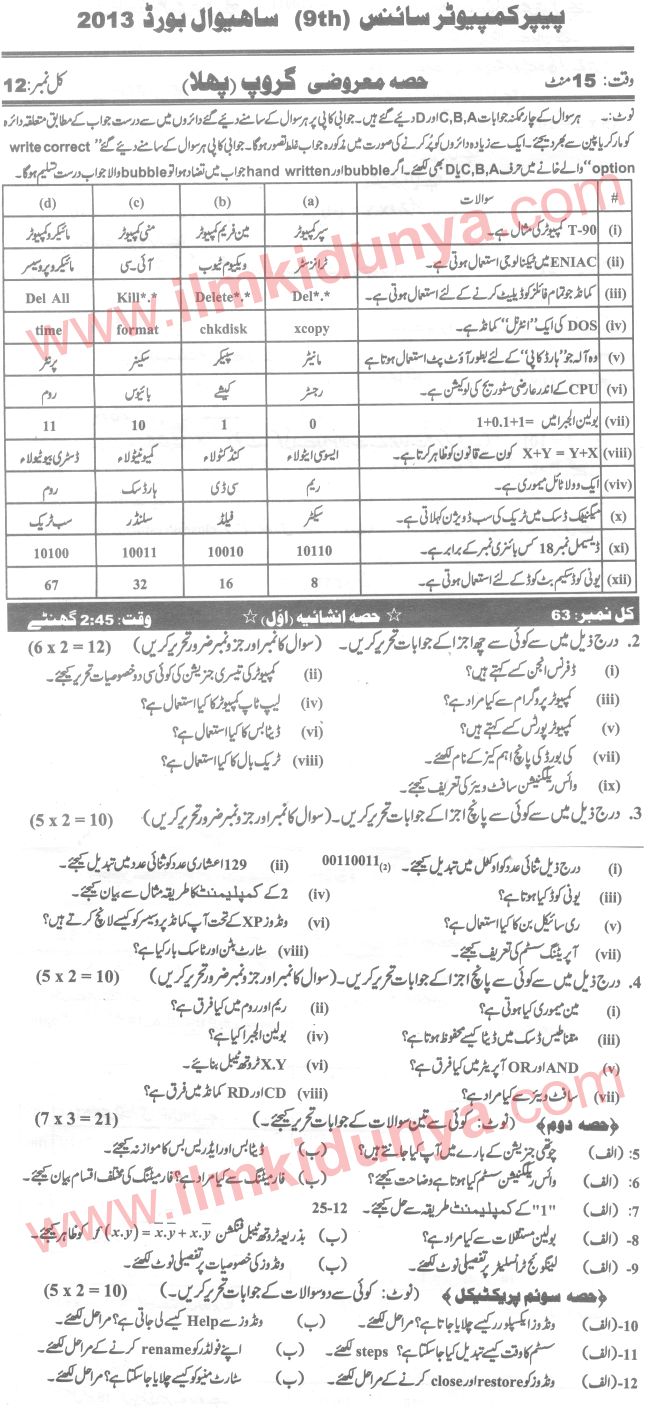 پیپر کمپیوٹر سائنس (9th) ساہیوال بورڈ 2013
وقت: 15 منٹ حصہ معروضی گروپ (پہلا) کل نمبر: 12
نوٹ:۔ ہر سوال کے چار ممکنہ جوابات C,B,A اور D دیئے گئے ہیں۔ جوابی کاپی پر ہر سوال کے سامنے دیئے گئے دائروں میں سے درست جواب کے مطابق متعلقہ دائرہ
کو مارکر یا پین سے بھر دیجئے۔ ایک سے زیادہ دائروں کو پُر کرنے کی صورت میں مذکورہ جواب غلط تصور ہوگا۔ جوابی کاپی پر ہر سوال کے سامنے دیئے گئے "write correct
option" والے خانے میں حرف C,B,A یا D بھی لکھئے۔ اگر bubble اور hand written جواب میں تضاد ہوا تو bubble والا جواب درست تسلیم ہوگا۔
# سوالات (a) (b) (c) (d)
(i) T-90 کمپیوٹر کی مثال ہے۔ سپر کمپیوٹر مین فریم کمپیوٹر منی کمپیوٹر مائیکرو کمپیوٹر
(ii) ENIAC میں ٹیکنالوجی استعمال ہوتی ہے۔ ٹرانزسٹر ویکیوم ٹیوب آئی۔سی مائیکرو پروسیسر
(iii) کمانڈ جو تمام فائلز کو ڈیلیٹ کرنے کے لئے استعمال ہوتی ہے۔ Del*.* Delete*.* Kill*.* Del All
(iv) DOS کی ایک "انٹرنل" کمانڈ ہے۔ xcopy chkdisk format time
(v) وہ آلہ جو "ہارڈ کاپی" کے لئے بطور آؤٹ پٹ استعمال ہوتا ہے مانیٹر سپیکر سکینر پرنٹر
(vi) CPU کے اندر عارضی سٹوریج کی لوکیشن ہے۔ رجسٹر کیشے بائیوس روم
(vii) بولین الجبرا میں =1+0.1+1 0 1 10 11
(viii) X+Y = Y+X کون سے قانون کو ظاہر کرتا ہے۔ ایسوسی ایٹو لاء کنڈکٹو لاء کمیوٹیٹو لاء ڈسٹری بیوٹیو لاء
(viv) ایک وولاٹائل میموری ہے۔ ریم سی ڈی ہارڈ سک روم
(x) میگنیٹک ڈسک میں ٹریک کی سب ڈویژن کہلاتی ہے۔ سیکٹر فیلڈ سلنڈر سب ٹریک
(xi) ڈیسیمل نمبر 18 کس بائنری نمبر کے برابر ہے۔ 10110 10010 10011 10100
(xii) یونی کوڈ سکیم بٹ کوڈ کے لئے استعمال ہوتی ہے۔ 8 16 32 67
کل نمبر: 63 ☆ حصہ انشائیہ (اوّل) ☆ وقت: 2:45 گھنٹے
2. درج ذیل میں سے کوئی سے چھ اجزا کے جوابات تحریر کریں۔ (سوال کا نمبر اور جز و نمبر ضرور تحریر کریں) (6 x 2 = 12)
(i) ڈفرنس انجن کسے کہتے ہیں؟ (ii) کمپیوٹر کی تیسری جنریشن کی کوئی سی دو خصوصیات تحریر کیجئے۔
(iii) کمپیوٹر پروگرام سے کیا مراد ہے؟ (iv) لیپ ٹاپ کمپیوٹر کا کیا استعمال ہے؟
(v) کمپیوٹر پورٹس کسے کہتے ہیں؟ (vi) ڈیٹا بس کا کیا استعمال ہے؟
(vii) کی بورڈ کی پانچ اہم کیز کے نام لکھئے۔ (viii) ٹریک بال کا کیا استعمال ہے؟
(ix) وائس ریلکنیشن سافٹ ویئر کی تعریف کیجئے۔
3. درج ذیل میں سے کوئی سے پانچ اجزا کے جوابات تحریر کریں۔ (سوال کا نمبر اور جز و نمبر ضرور تحریر کریں) (5 x 2 = 10)
(i) درج ذیل ثنائی عدد کو اوکٹل میں تبدیل کیجئے۔ 00110011(2) (ii) 129 اعشاری عدد کو ثنائی عدد میں تبدیل کیجئے۔
(iii) یونی کوڈ کیا ہوتا ہے؟ (iv) 2 کے کمپلیمنٹ کا طریقہ مثال سے بیان کیجئے۔
(v) ری سائیکل بن کا کیا استعمال ہے؟ (vi) ونڈوز XP کے تحت آپ کمانڈ پروسیسر کو کیسے لانچ کرتے ہیں؟
(vii) آپریٹنگ سسٹم کی تعریف کیجئے۔ (viii) سٹارٹ بٹن اور ٹاسک بار کیا ہے؟
4. درج ذیل میں سے کوئی سے پانچ اجزا کے جوابات تحریر کریں۔ (سوال کا نمبر اور جز و نمبر ضرور تحریر کریں) (5 x 2 = 10)
(i) مین میموری کیا ہوتی ہے؟ (ii) ریم اور روم میں کیا فرق ہے؟
(iii) مقناطیس ڈسک میں ڈیٹا کیسے محفوظ ہوتا ہے؟ (iv) بولین الجبرا کیا ہے؟
(v) AND اور OR آپریٹر میں کیا فرق ہے؟ (vi) X.Y ٹروتھ ٹیبل بنائیے۔
(vii) سافٹ ویئر سے کیا مراد ہے؟ (viii) CD اور RD کمانڈ میں فرق ہے؟
﴿حصہ دوم﴾ (نوٹ: کوئی سے تین سوالات کے جوابات تحریر کیجئے۔) (7 x 3 = 21)
5: (الف) چوتھی جنریشن کے بارے میں آپ کیا جانتے ہیں؟ (ب) ڈیٹا بس اور ایڈریس بس کا موازنہ کیجئے۔
6: (الف) وائس ریلکنیشن سسٹم کیا ہوتا ہے وضاحت کیجئے۔ (ب) فارمیٹنگ سے کیا مراد ہے؟ فارمیٹنگ کی مختلف اقسام بیان کیجئے۔
7: (الف) "1" کے کمپلیمنٹ طریقہ سے حل کیجئے۔ 25-12
8- (الف) بولین مستقلات سے کیا مراد ہے؟ (ب) بذریعہ ٹروتھ ٹیبل فنکشن f(x.y) = x̅.y̅ + x.y̅ کو ظاہر کیجئے۔
9- (الف) لینگوئج ٹرانسلیٹر پر تفصیلی نوٹ لکھئے۔ (ب) ونڈوز کی خصوصیات پر تفصیلی نوٹ لکھئے۔
﴿حصہ سوئم پریکٹیکل﴾ (نوٹ: کوئی سے دو سوالات کے جوابات تحریر کریں۔) (5 x 2 = 10)
10- (الف) ونڈوز ایکسپلورر کیسے چلایا جاتا ہے؟ مراحل لکھئے۔ (ب) ونڈوز سے Help کیسے لی جاتی ہے؟ مراحل لکھئے۔
11- (الف) سسٹم کا وقت کیسے تبدیل کیا جا سکتا ہے؟ steps لکھئے۔ (ب) اپنے فولڈر کو rename کرنے کے مراحل لکھئے۔
12- (الف) ونڈوز کو restore اور close کرنے کے مراحل لکھئے۔ (ب) سٹارٹ مینیو کو کیسے چلایا جا سکتا ہے؟ مراحل لکھئے۔
www.ilmkidunya.com
www.ilmkidunya.com